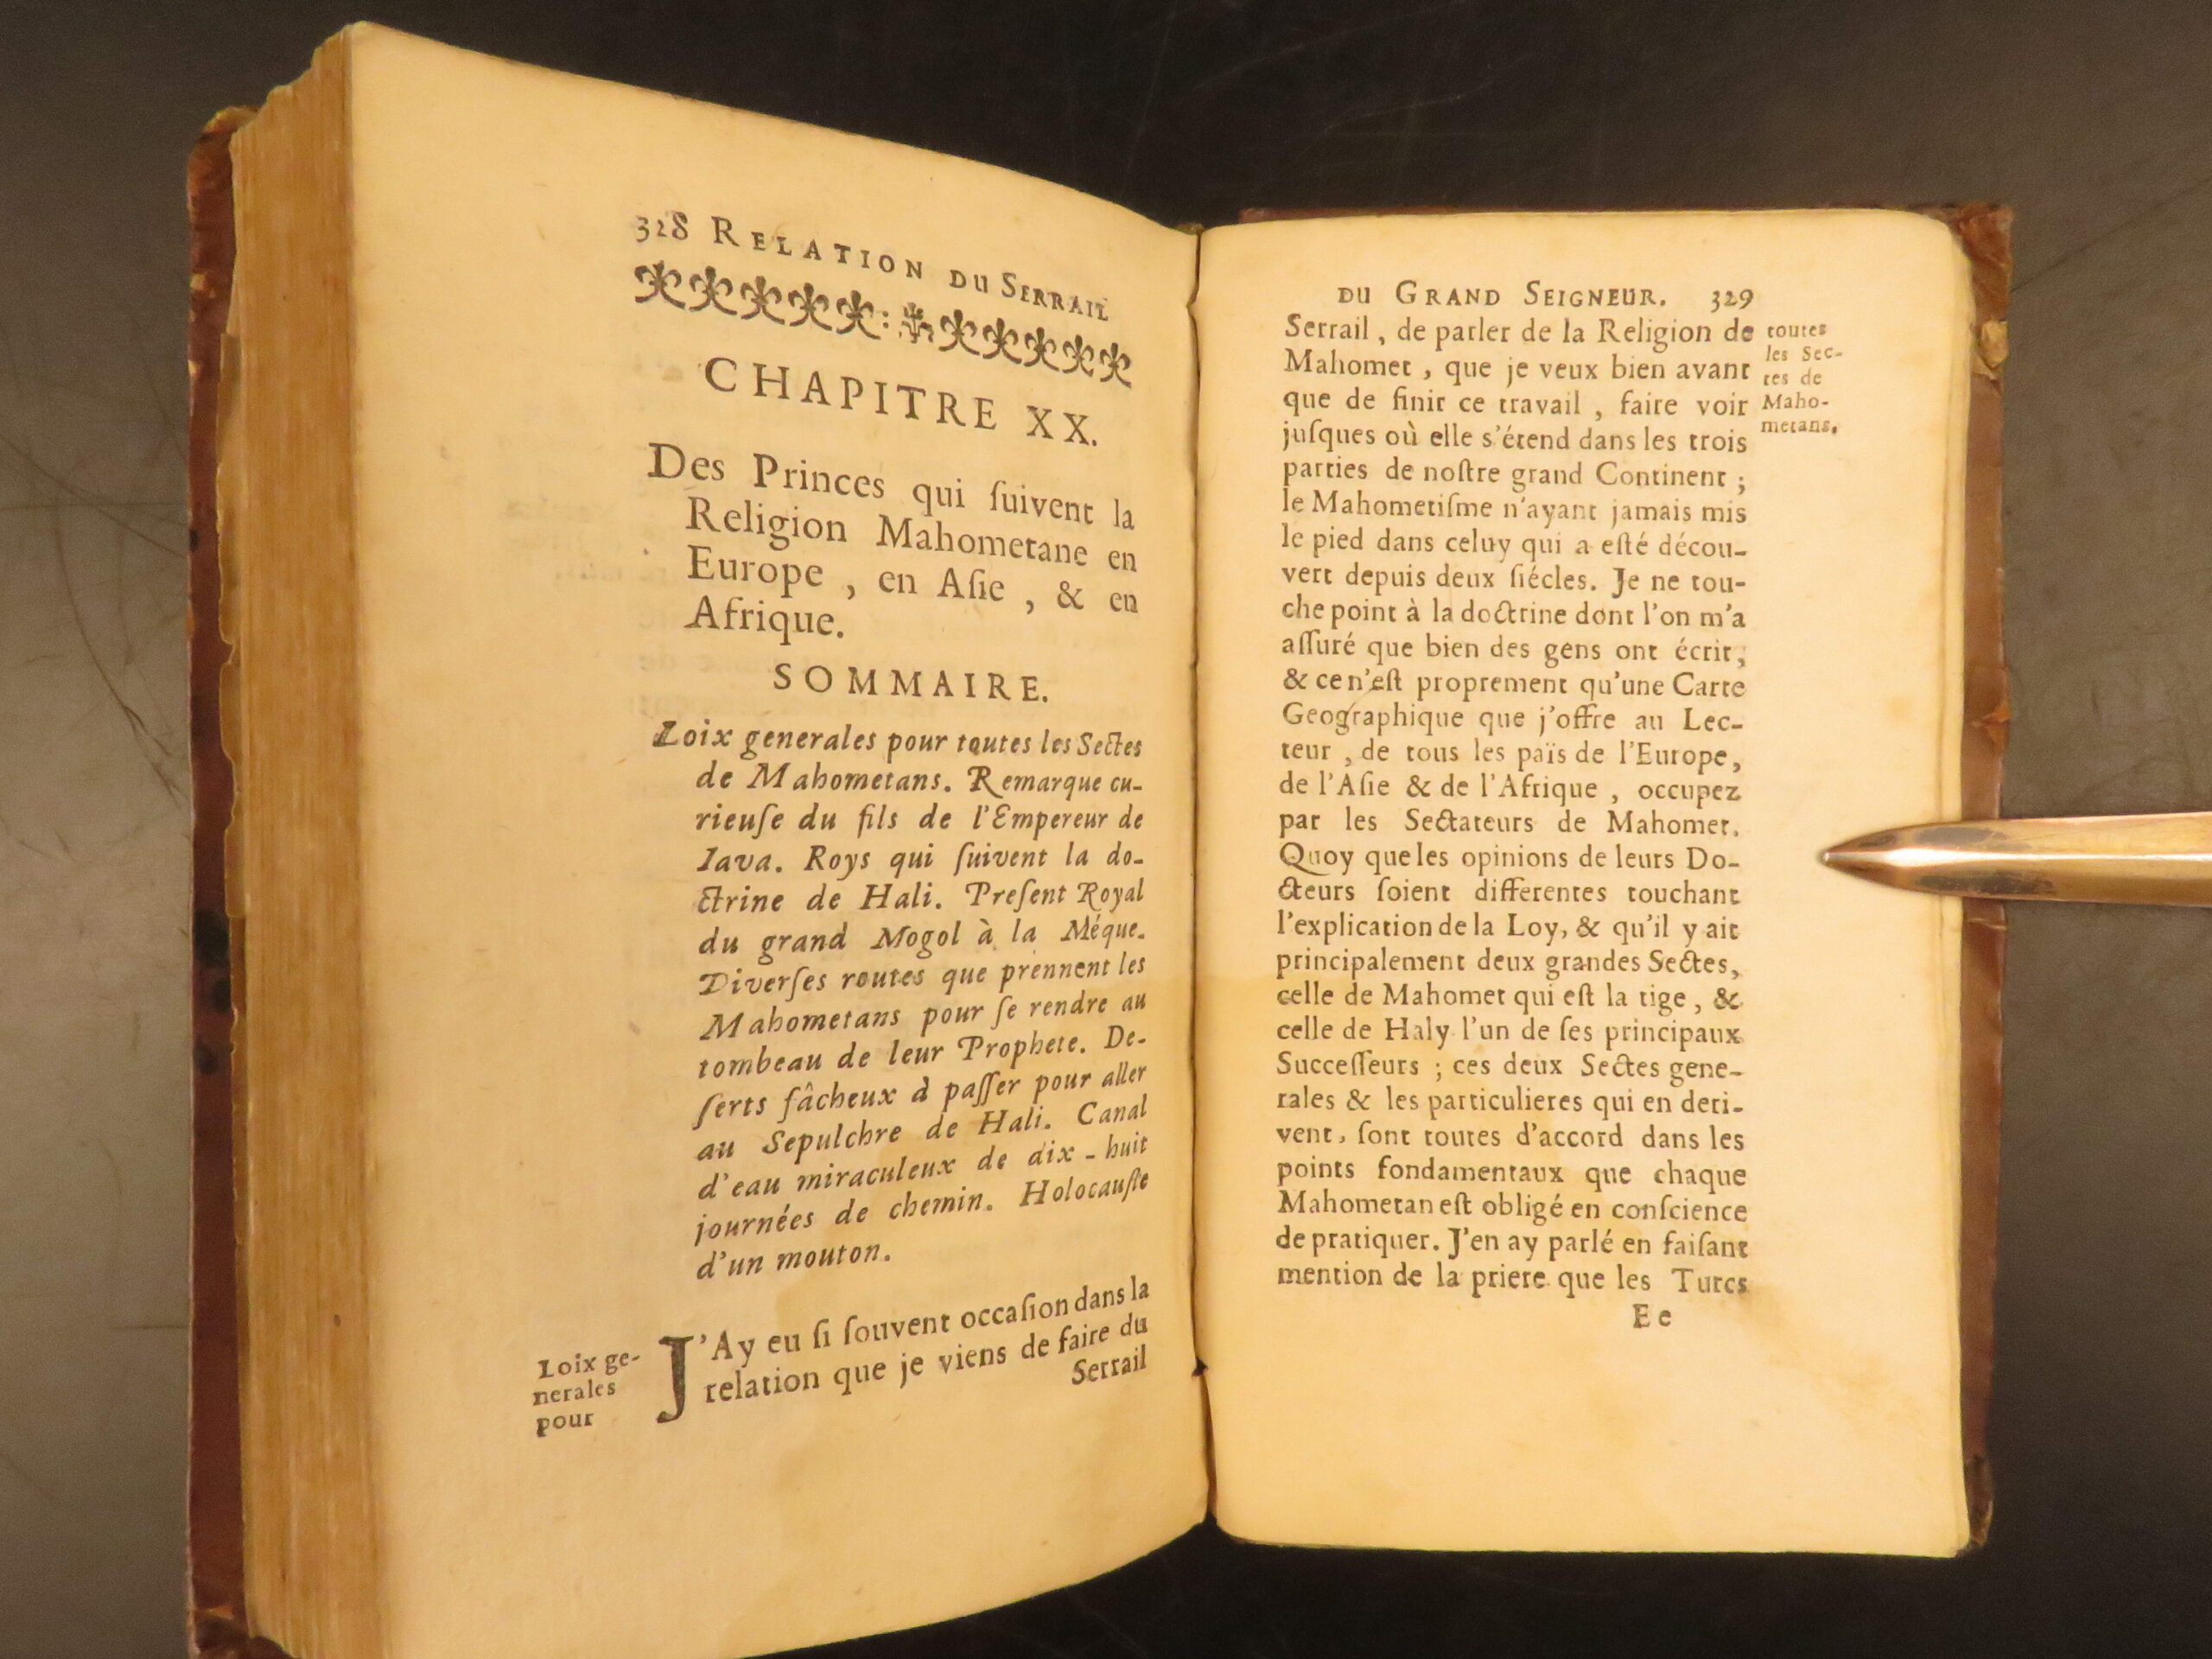 328 RELATION DU SERRAIL
CHAPITRE XX.
Des Princes qui ſuivent la
Religion Mahometane en
Europe, en Aſie, & en
Afrique.
SOMMAIRE.
Loix generales pour toutes les Sectes
de Mahometans. Remarque cu-
rieuſe du fils de l'Empereur de
Iava. Roys qui ſuivent la do-
ctrine de Hali. Preſent Royal
du grand Mogol à la Méque.
Diverſes routes que prennent les
Mahometans pour ſe rendre au
tombeau de leur Prophete. De-
ſerts fâcheux à paſſer pour aller
au Sepulchre de Hali. Canal
d'eau miraculeux de dix-huit
journées de chemin. Holocauſte
d'un mouton.
Loix ge-
nerales
pour
J'Ay eu ſi ſouvent occaſion dans la
relation que je viens de faire du
Serrail
DU GRAND SEIGNEUR. 329
Serrail, de parler de la Religion de
Mahomet, que je veux bien avant
que de finir ce travail, faire voir
juſques où elle s'étend dans les trois
parties de noſtre grand Continent;
le Mahometiſme n'ayant jamais mis
le pied dans celuy qui a eſté décou-
vert depuis deux ſiécles. Je ne tou-
che point à la doctrine dont l'on m'a
aſſuré que bien des gens ont écrit,
& ce n'eſt proprement qu'une Carte
Geographique que j'offre au Lec-
teur, de tous les païs de l'Europe,
de l'Aſie & de l'Afrique, occupez
par les Sectateurs de Mahomet.
Quoy que les opinions de leurs Do-
cteurs ſoient differentes touchant
l'explication de la Loy, & qu'il y ait
principalement deux grandes Sectes,
celle de Mahomet qui eſt la tige, &
celle de Haly l'un de ſes principaux
Succeſſeurs; ces deux Sectes gene-
rales & les particulieres qui en deri-
vent, ſont toutes d'accord dans les
points fondamentaux que chaque
Mahometan eſt obligé en conſcience
de pratiquer. J'en ay parlé en faiſant
mention de la priere que les Turcs
Ee
toutes
les Sec-
tes de
Maho-
metans.